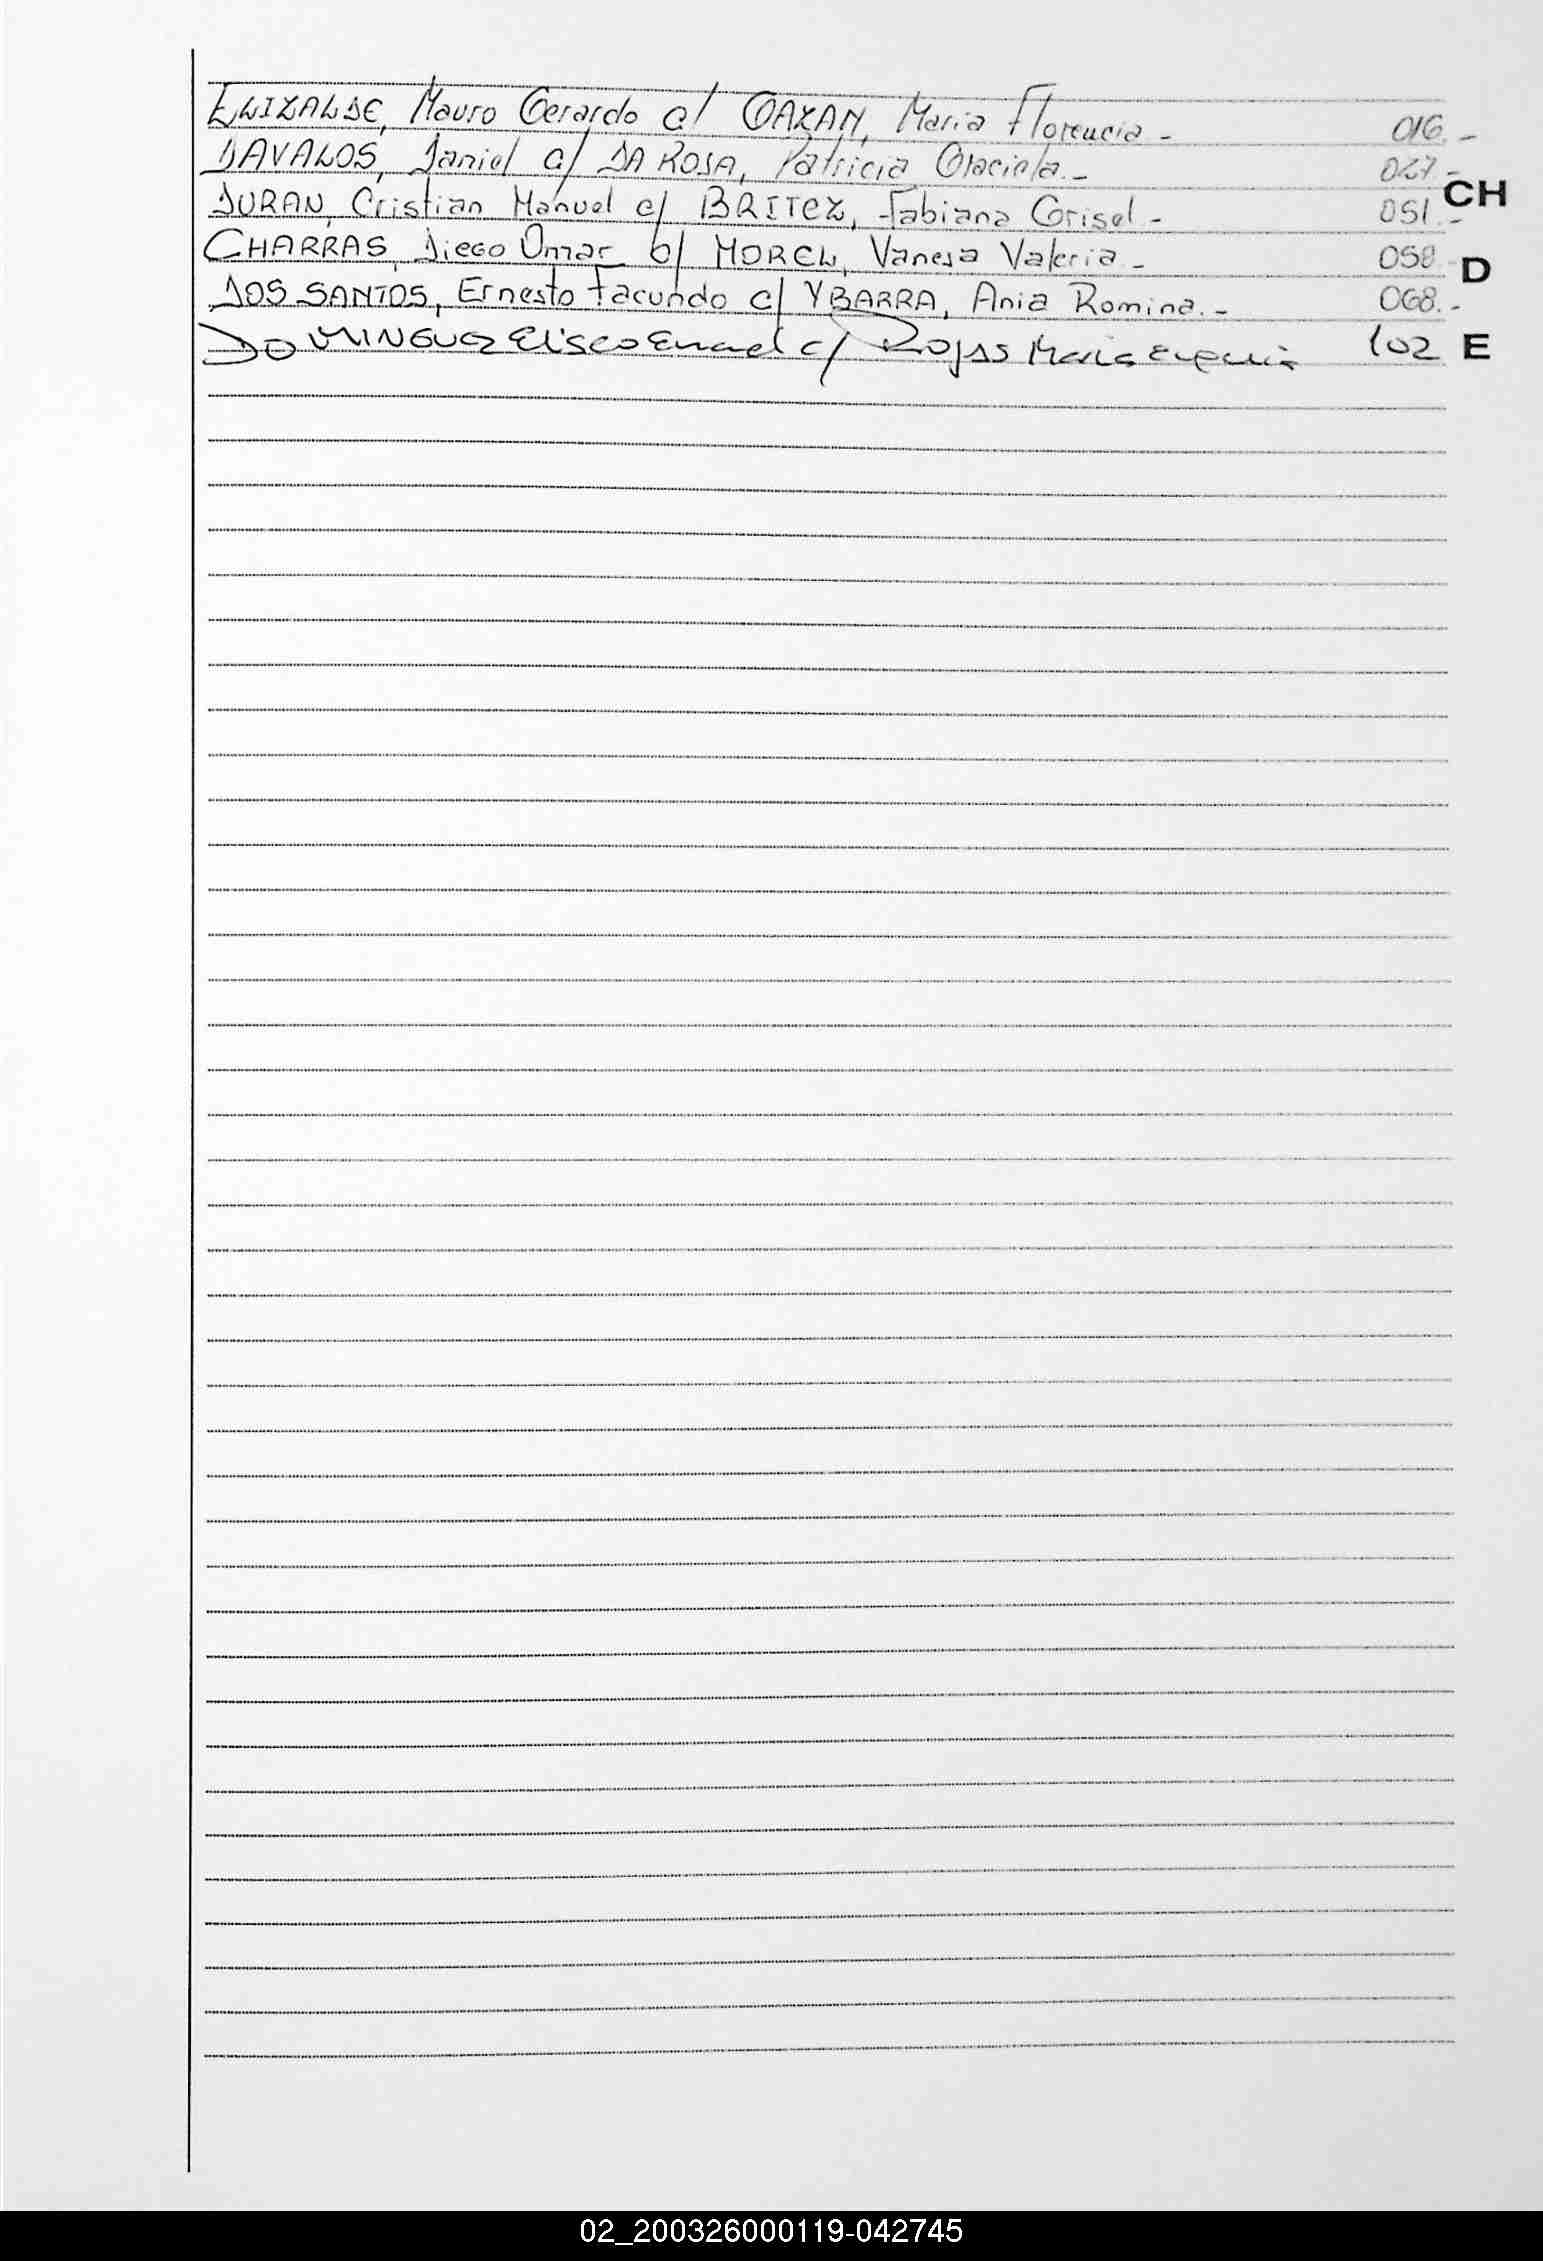 ELIZALDE, Mauro Gerardo c/ GAZAN, Maria Florencia.- 016.-
DAVALOS, Daniel c/ DA ROSA, Patricia Graciela.- 027.-
CH
DURAN, Cristian Manuel c/ BRITEZ, Fabiana Grisel.- 051.-
CHARRAS, Diego Omar c/ MOREL, Vanesa Valeria.- 058.-
D
DOS SANTOS, Ernesto Facundo c/ YBARRA, Ania Romina.- 068.-
DOMINGUEZ Eliseo c/ ROJAS Maria Eugenia 102
E
02_200326000119-042745